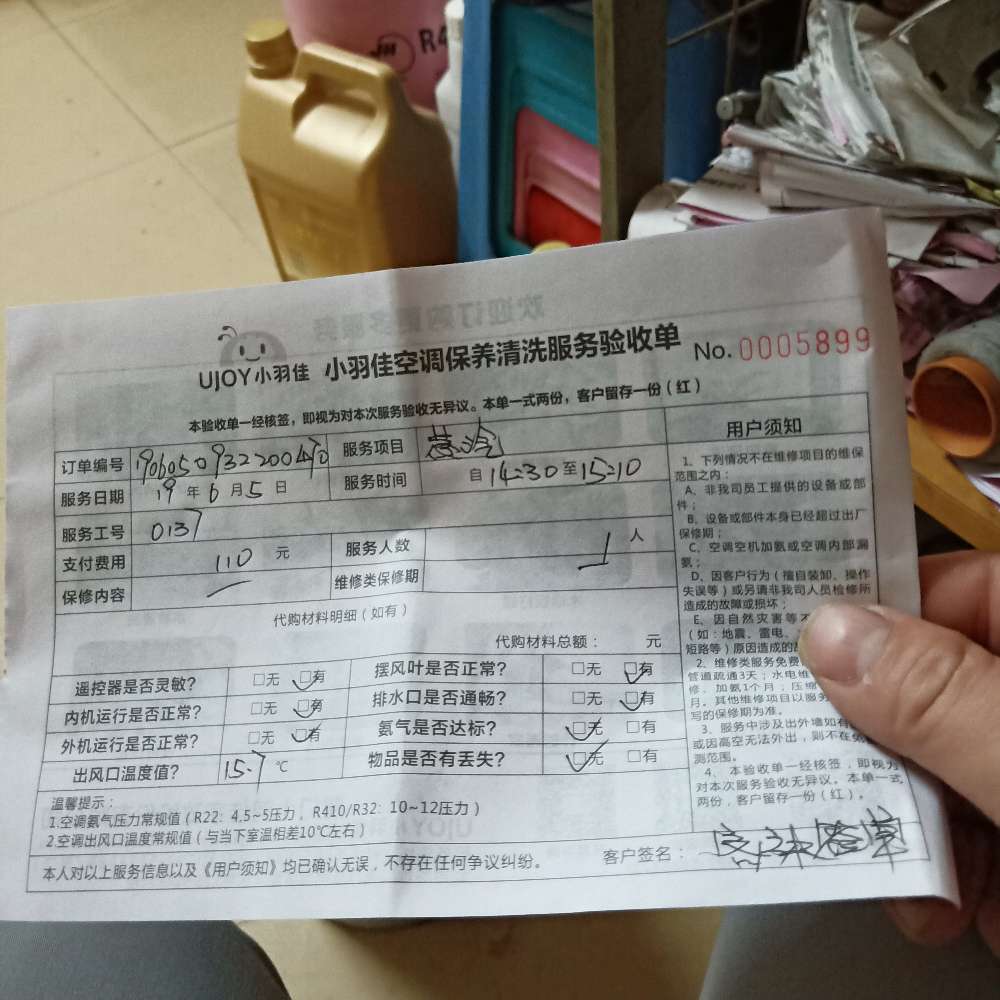 R4
UJOY小羽佳 小羽佳空调保养清洗服务验收单 No. 0005899
本验收单一经核签，即视为对本次服务验收无异议。本单一式两份，客户留存一份（红）
订单编号 服务项目
服务日期 19 年 6 月 5 日 服务时间 自 14:30 至 15:10
服务工号 0137
支付费用 110 元 服务人数 1 人
保修内容 维修类保修期
代购材料明细（如有）
代购材料总额： 元
遥控器是否灵敏？ □无 □有 摆风叶是否正常？ □无 □有
内机运行是否正常？ □无 □有 排水口是否通畅？ □无 □有
外机运行是否正常？ □无 □有 氨气是否达标？ □无 □有
出风口温度值？ 15.7 ℃ 物品是否有丢失？ □无 □有
温馨提示：
1.空调氨气压力常规值（R22: 4.5~5压力， R410/R32: 10~12压力）
2.空调出风口温度常规值（与当下室温相差10℃左右）
本人对以上服务信息以及《用户须知》均已确认无误，不存在任何争议纠纷。 客户签名：
用户须知
1、下列情况不在维修项目的维保
范围之内：
A、非我司员工提供的设备或部
件；
B、设备或部件本身已经超过出厂
保修期；
C、空调空机加氨或空调内部漏
氨；
D、因客户行为（擅自装卸、操作
失误等）或另请非我司人员检修所
造成的故障或损坏；
E、因自然灾害等不
（如：地震、雷电、
短路等）原因造成的故
2、维修类服务免费
管道疏通3天；水电维
修、加氨1个月；压缩
月。其他维修项目以服务
写的保修期为准。
3、服务中涉及出外墙如有
或因高空无法外出，则不在
测范围。
4、本验收单一经核签，即视为
对本次服务验收无异议。本单一式
两份，客户留存一份（红）。